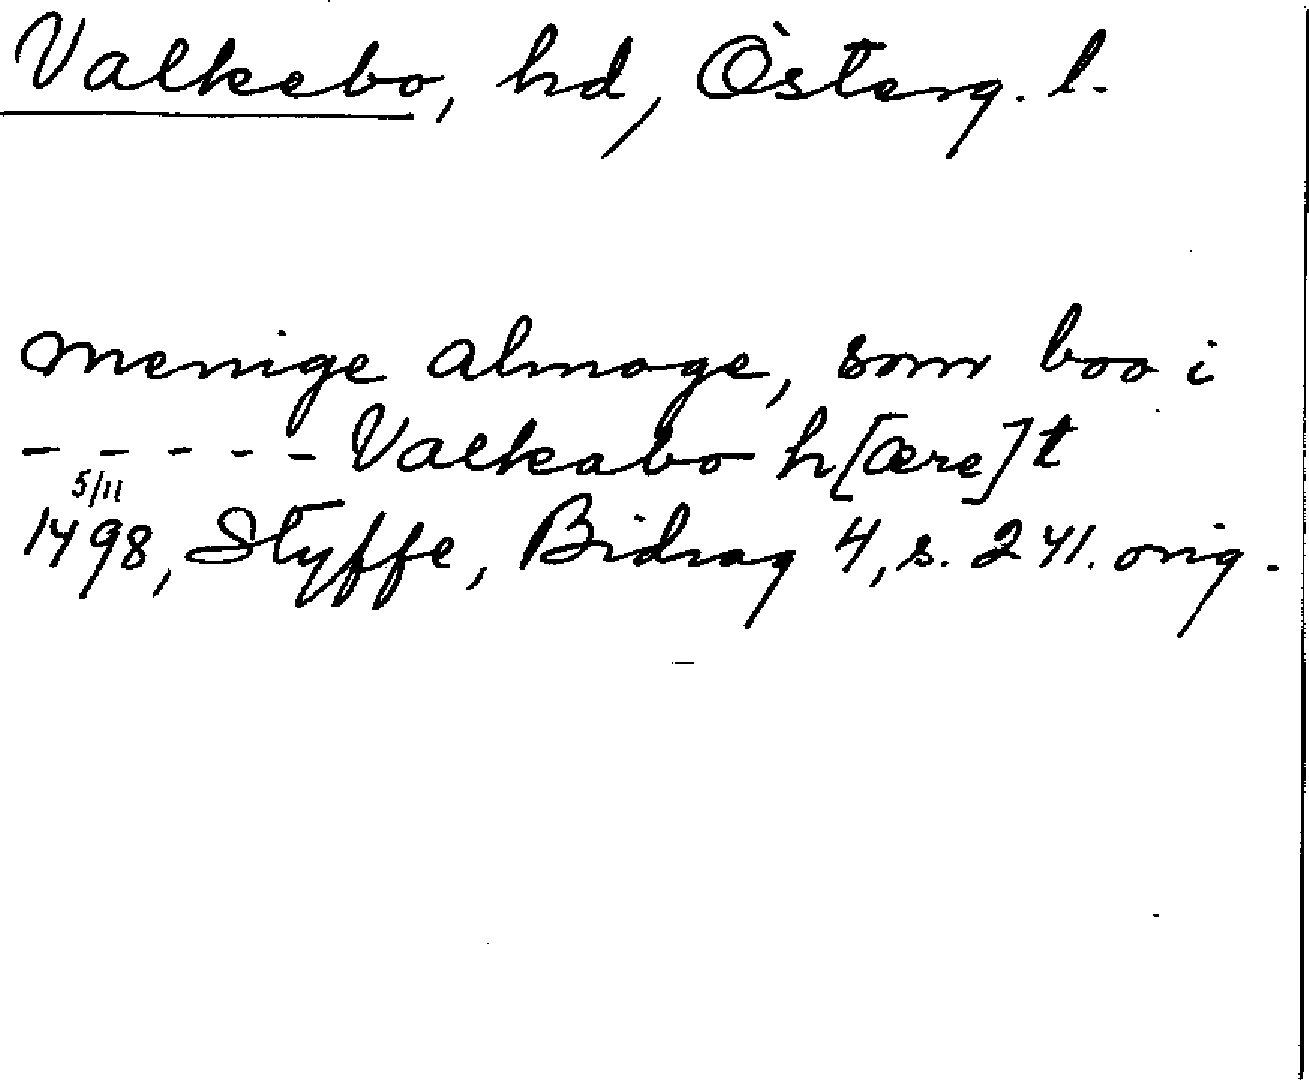 Valkebo, hd, Österg. l.
menige almoge, som boo i
- - - - - Valkabo h[ære]t
5/11
1498, Styffe, Bidrag 4, s. 241. orig.